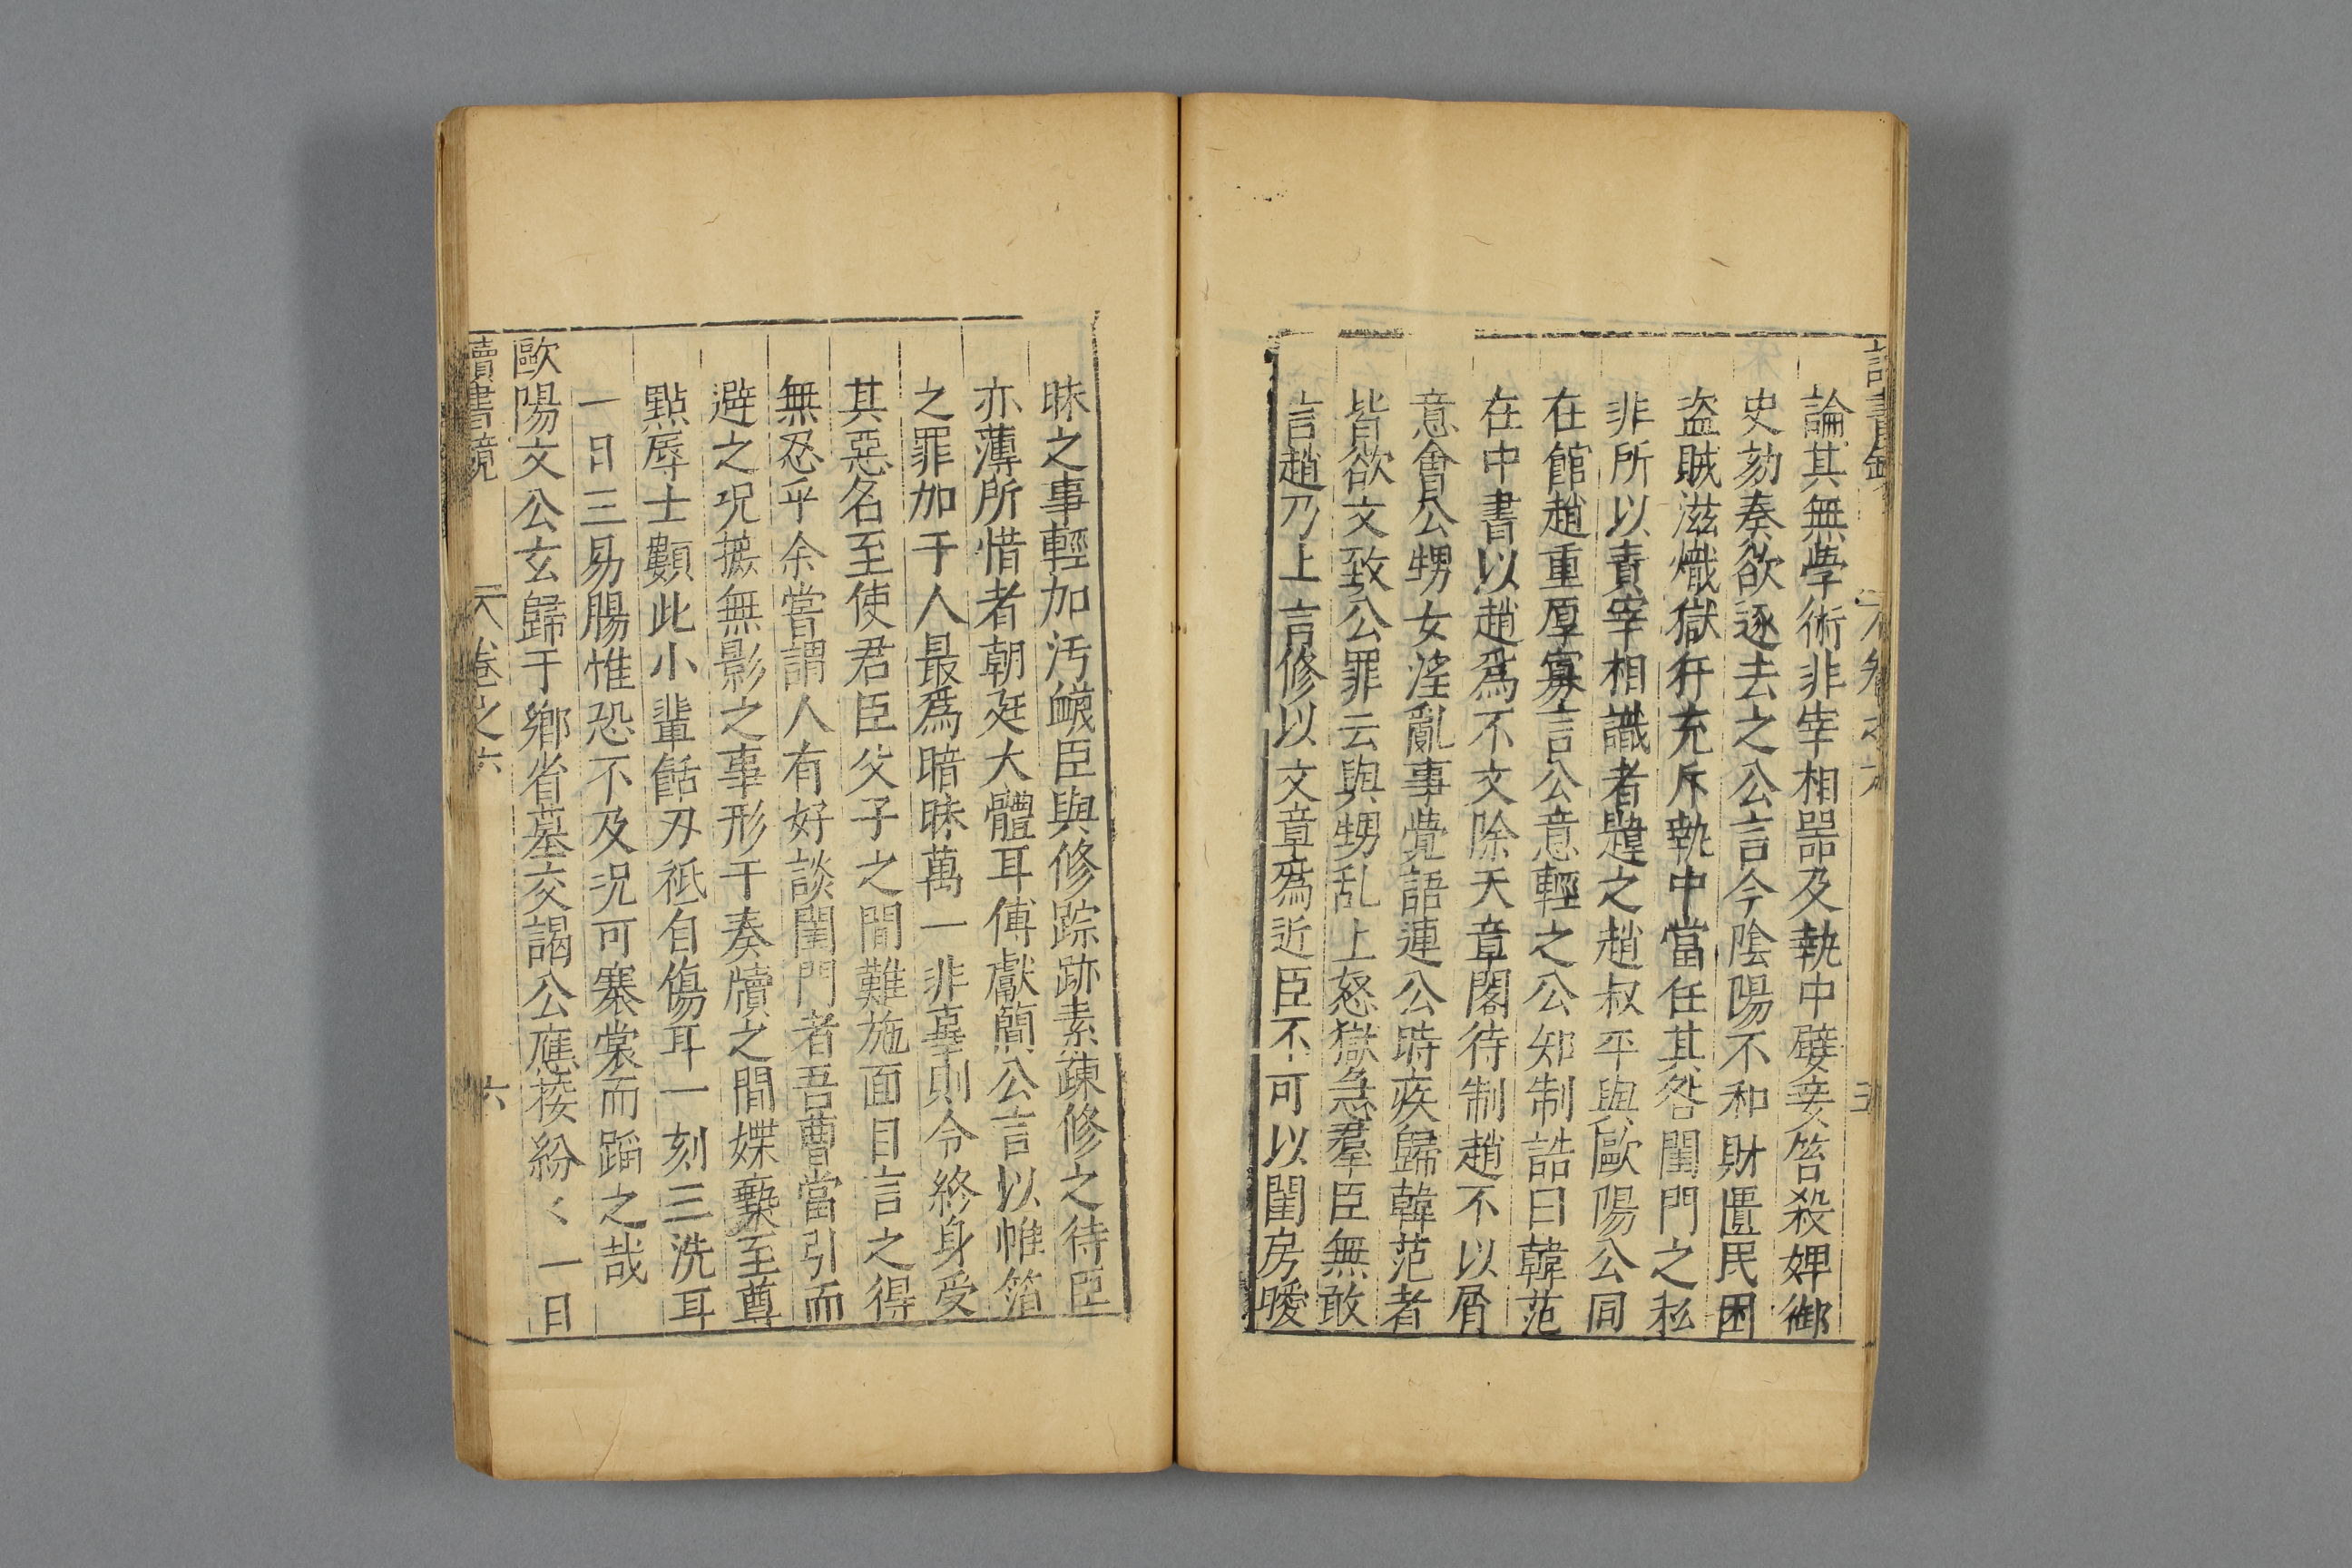 論其無學術非宰相噐及執中嬖妾笞殺婢御
史劾奏欲逐去之公言今陰陽不和財匱民困
盗賊滋熾獄犴充斥執中當任其咎閨門之私
非所以責宰相識者韙之趙叔平與歐陽公同
在館趙重厚寡言公意輕之公知制誥曰韓范
在中書以趙爲不文除天章閣待制趙不以屑
意會公甥女淫亂事覺語連公時疾歸韓范者
皆欲文致公罪云與甥乱上怒獄急羣臣無敢
言趙乃上言修以文章爲近臣不可以閨房曖
昧之事輕加汚衊臣與修踪跡素疎修之待臣
亦薄所惜者朝廷大體耳傅獻簡公言以帷箔
之罪加于人最爲暗昧萬一非辜則令終身受
其惡名至使君臣父子之間難施面目言之得
無忍乎余嘗謂人有好談閨門者吾曹當引而
避之况摭無影之事形于奏牘之間媟䙝至尊
點辱士類此小輩餂刃祗自傷耳一刻三洗耳
一日三易腸惟恐不及况可褰裳而蹈之哉
歐陽文公玄歸于鄉省墓交謁公應接紛〻一日
讀書鏡 卷之六 六